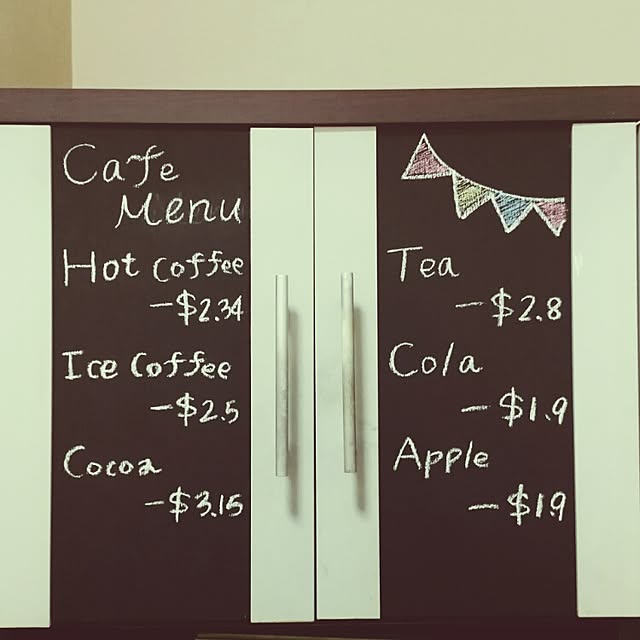 Cafe
Menu
Hot Coffee
-$2.34
Ice Coffee
-$2.5
Cocoa
-$3.15
Tea
-$2.8
Cola
-$1.9
Apple
-$1.9